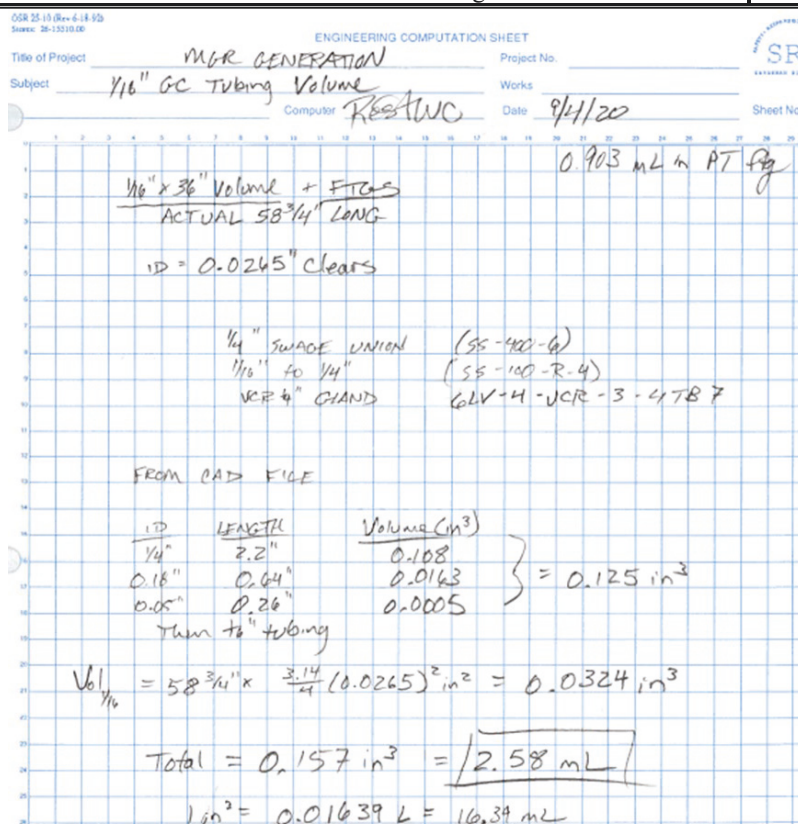 OSR 25-10 (Rev 6-18-92)
Stores: 26-15510.00
ENGINEERING COMPUTATION SHEET
SR
Title of Project MGR GENERATION Project No.
Subject 1/16" GC Tubing Volume Works
Computer Date 9/4/20 Sheet No
0.903 mL in PT ftg
1/16" x 36" Volume + FTGS
ACTUAL 58 3/4" LONG
ID = 0.0265" Clears
1/4" SWAGE UNION (SS-400-6)
1/16" to 1/4" (SS-100-R-4)
VCR 4" GLAND 6LV-4-VCR-3-4TB7
FROM CAD FILE
ID LENGTH Volume (in³)
1/4" 2.2" 0.108
0.18" 0.64" 0.0163 } = 0.125 in³
0.05" 0.26" 0.0005
Then to " tubing
Vol 1/16 = 58 3/4" x 3.14/4 (0.0265)² in² = 0.0324 in³
Total = 0.157 in³ = 2.58 mL
1 in³ = 0.01639 L = 16.39 mL